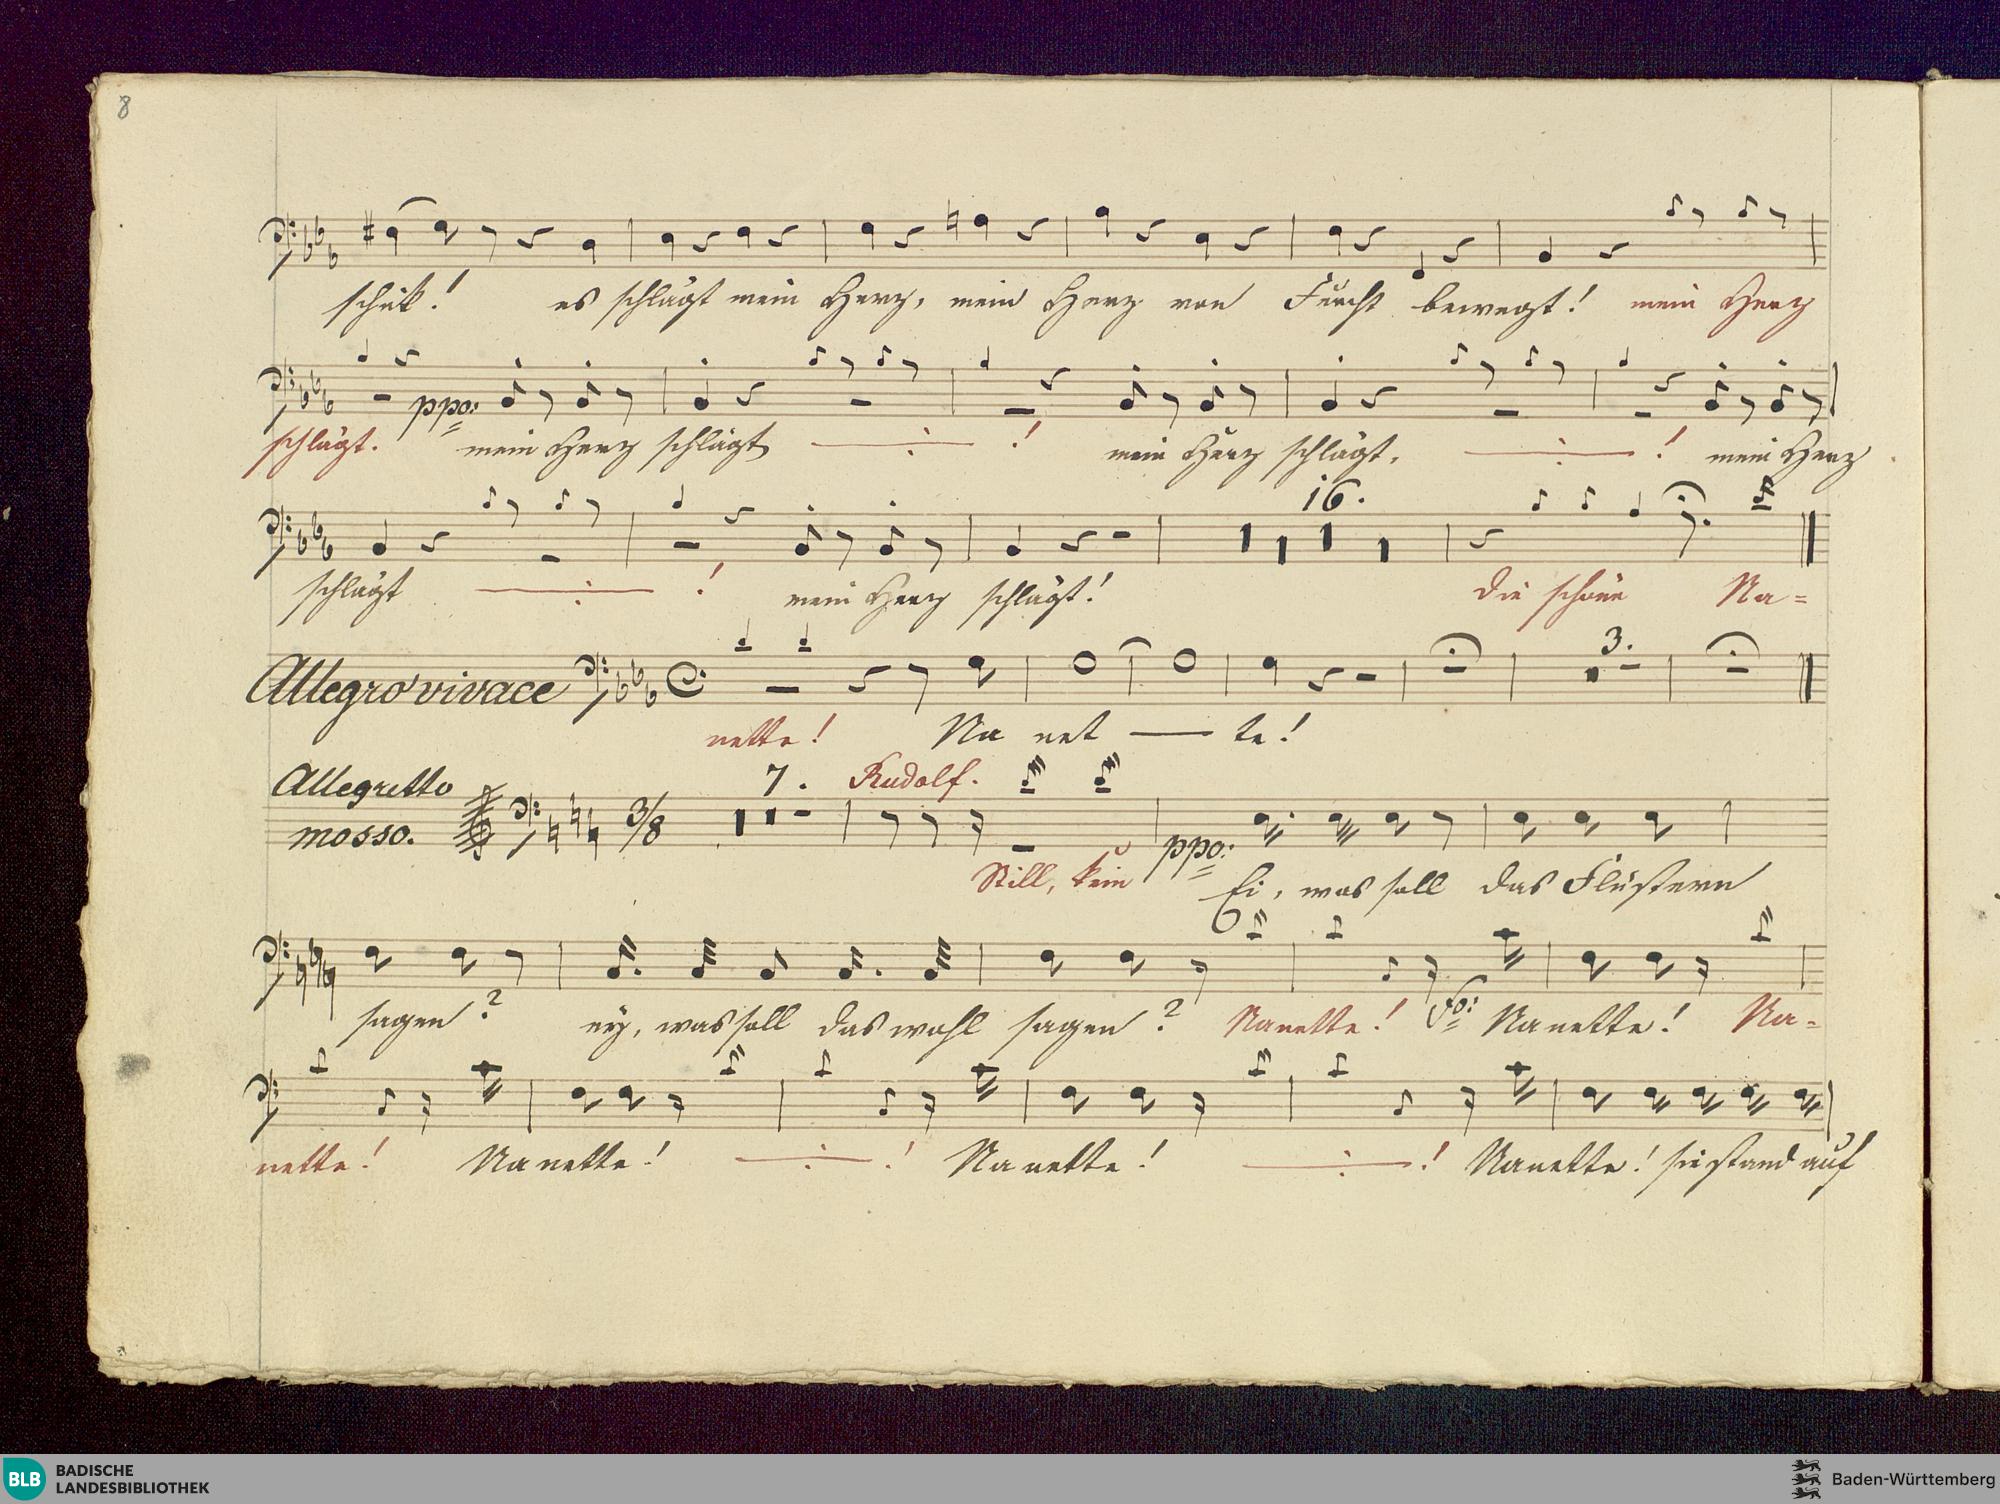 8
schick! es schlägt mein Herz, mein Herz von Furcht bewegt! mein Herz
ppo:
schlägt. mein Herz schlägt ! mein Herz schlägt, ! mein Herz
16.
schlägt ! mein Herz schlägt! Die schöne Na=
Allegro vivace
3.
nette! Na net te!
Allegretto mosso.
3/8
7. Rudolf.
ppo:
Still, kein Ei, was soll das Flüstern
sagen? ey, was soll das wohl sagen? Nanette! Fo: Nanette! Na-
nette! Nanette! ! Nanette! ! Nanette! sie stand auf
BLB BADISCHE
LANDESBIBLIOTHEK
Baden-Württemberg